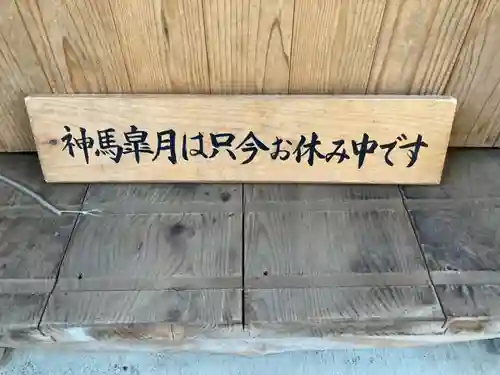 神馬皐月は只今お休み中です